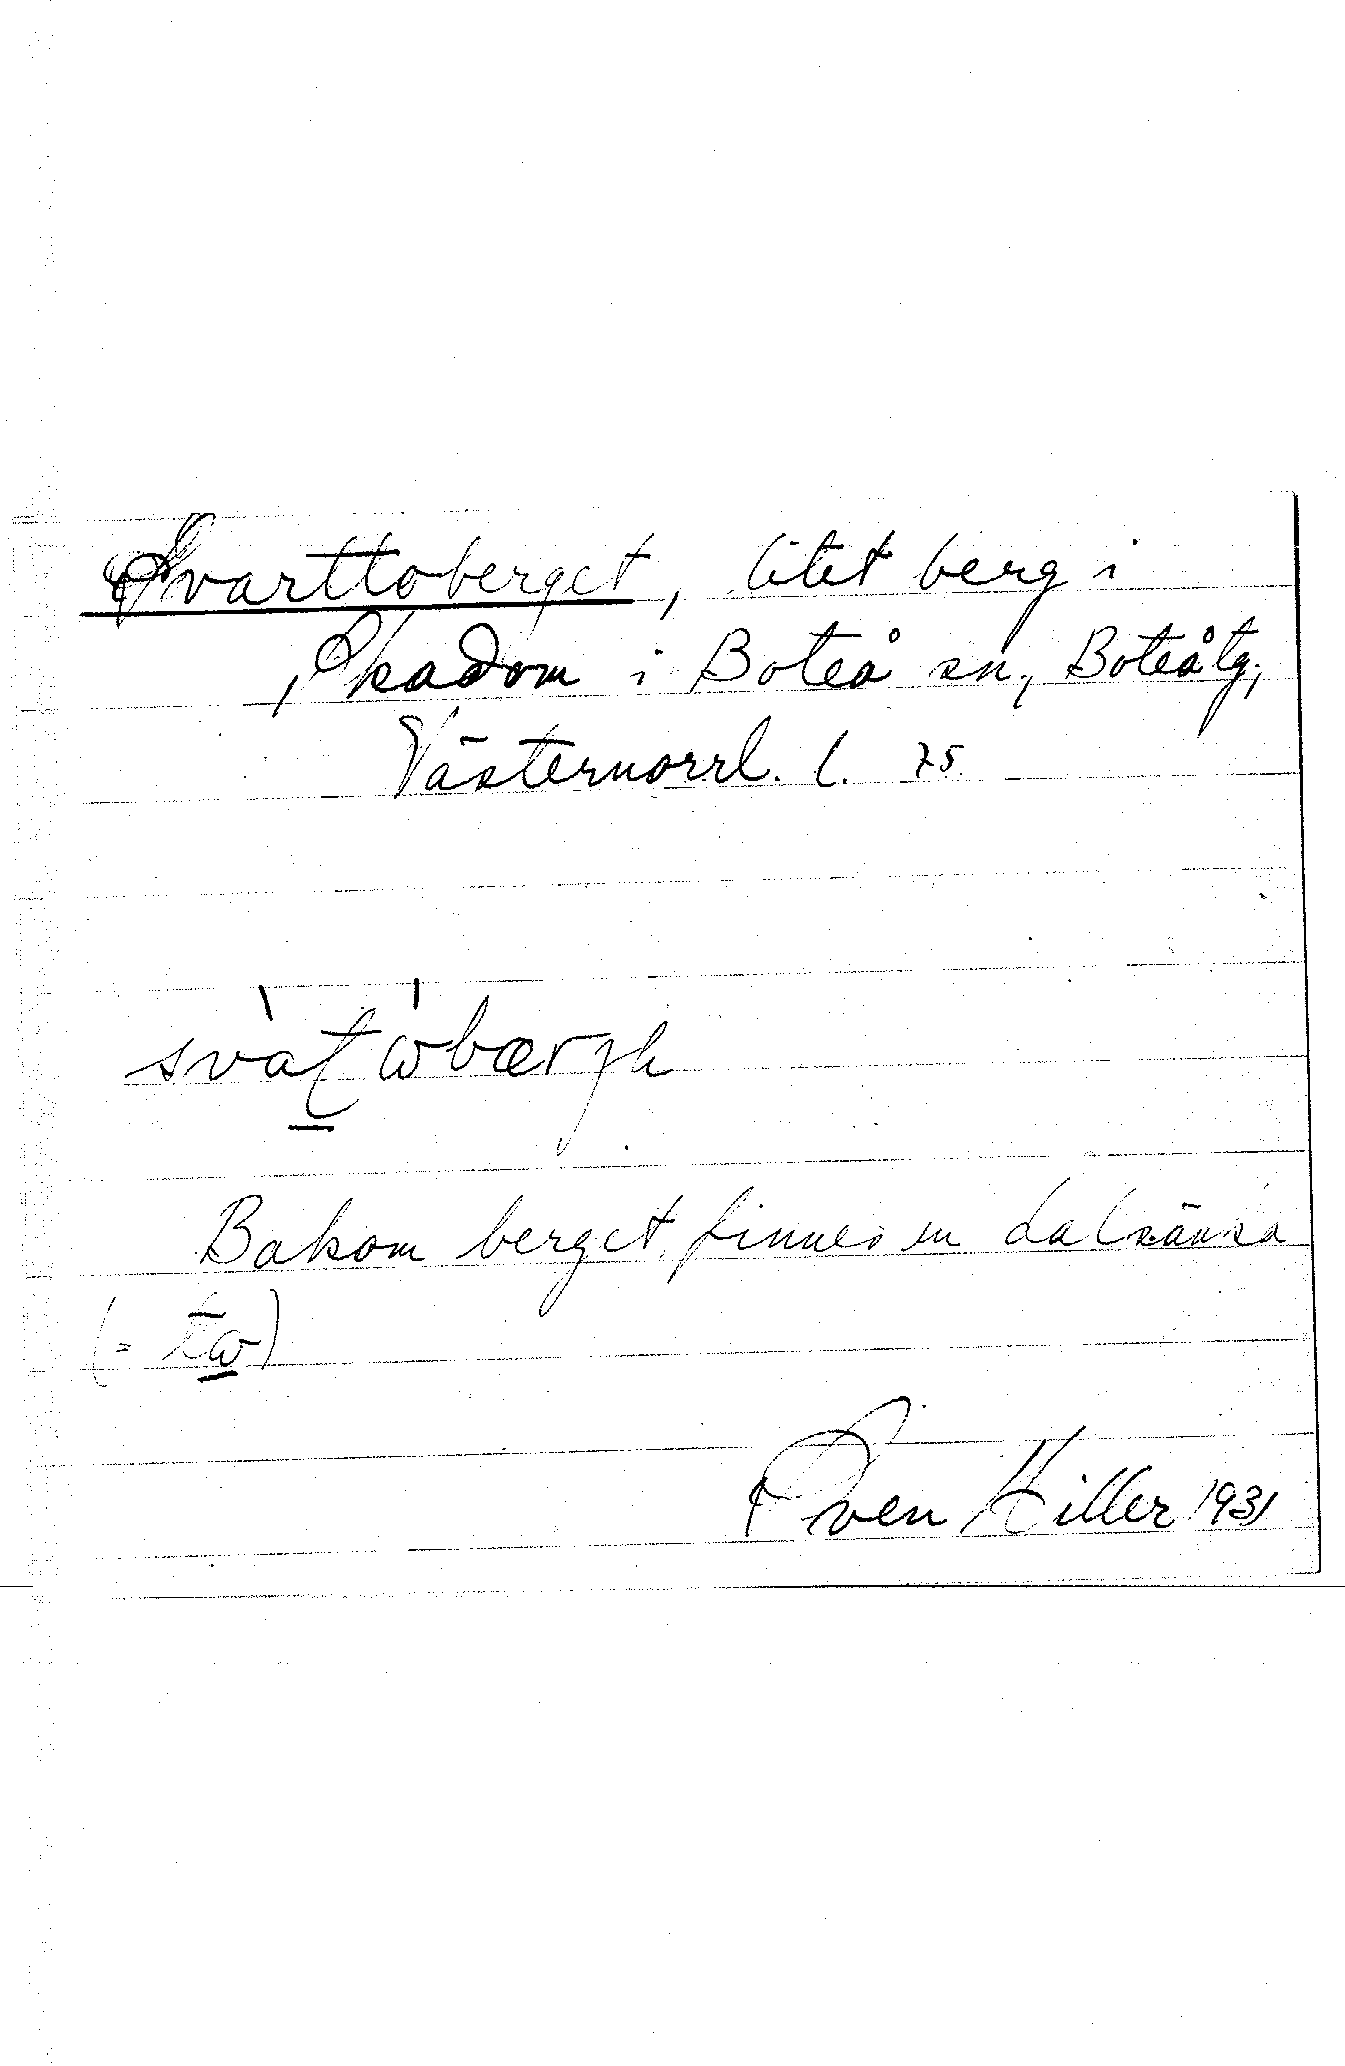 Svarttoberget, litet berg i
Skadom i Boteå sn, Boteå tg,
Västernorrl. l. 75.
svàt ὼbærgh
Bakom berget finnes en dalsänka
(= tω)
Sven Hiller 1931